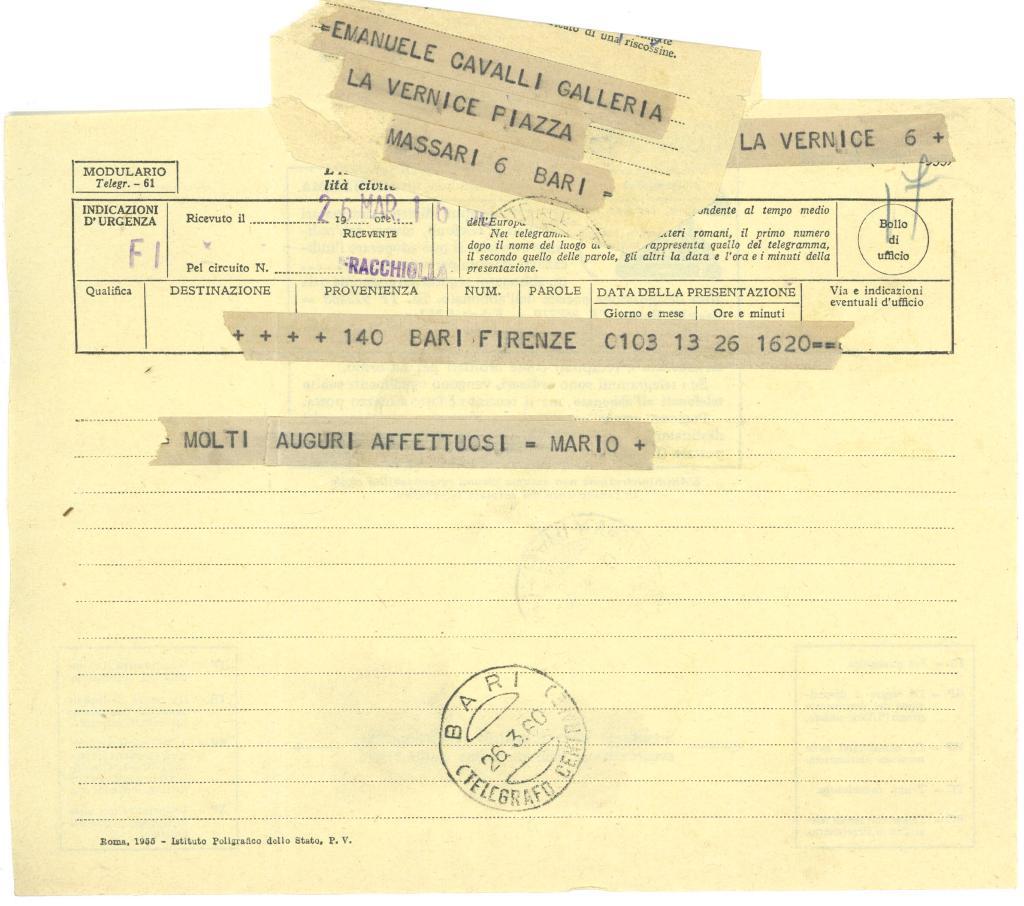 icato di una riscossine.
=EMANUELE CAVALLI GALLERIA
LA VERNICE PIAZZA
MASSARI 6 BARI =
LA VERNICE 6 +
MODULARIO
Telegr. - 61
lità civile
17
INDICAZIONI
D'URGENZA
FI
Ricevuto il
26 MAR. 16
19 ore
RICEVENTE
Pel circuito N.
RACCHIOLLA
ndente al tempo medio
dell'Europa
Nei telegrammi teri romani, il primo numero
dopo il nome del luogo di rappresenta quello del telegramma,
il secondo quello delle parole, gli altri la data e l'ora e i minuti della
presentazione.
Bollo
di
ufficio
Qualifica DESTINAZIONE PROVENIENZA NUM. PAROLE DATA DELLA PRESENTAZIONE Via e indicazioni
eventuali d'ufficio
Giorno e mese Ore e minuti
+ + + + 140 BARI FIRENZE C103 13 26 1620==
= MOLTI AUGURI AFFETTUOSI = MARIO +
BARI
26.3.60
(TELEGRAFO CENTRALE)
Roma, 1955 - Istituto Poligrafico dello Stato, P. V.